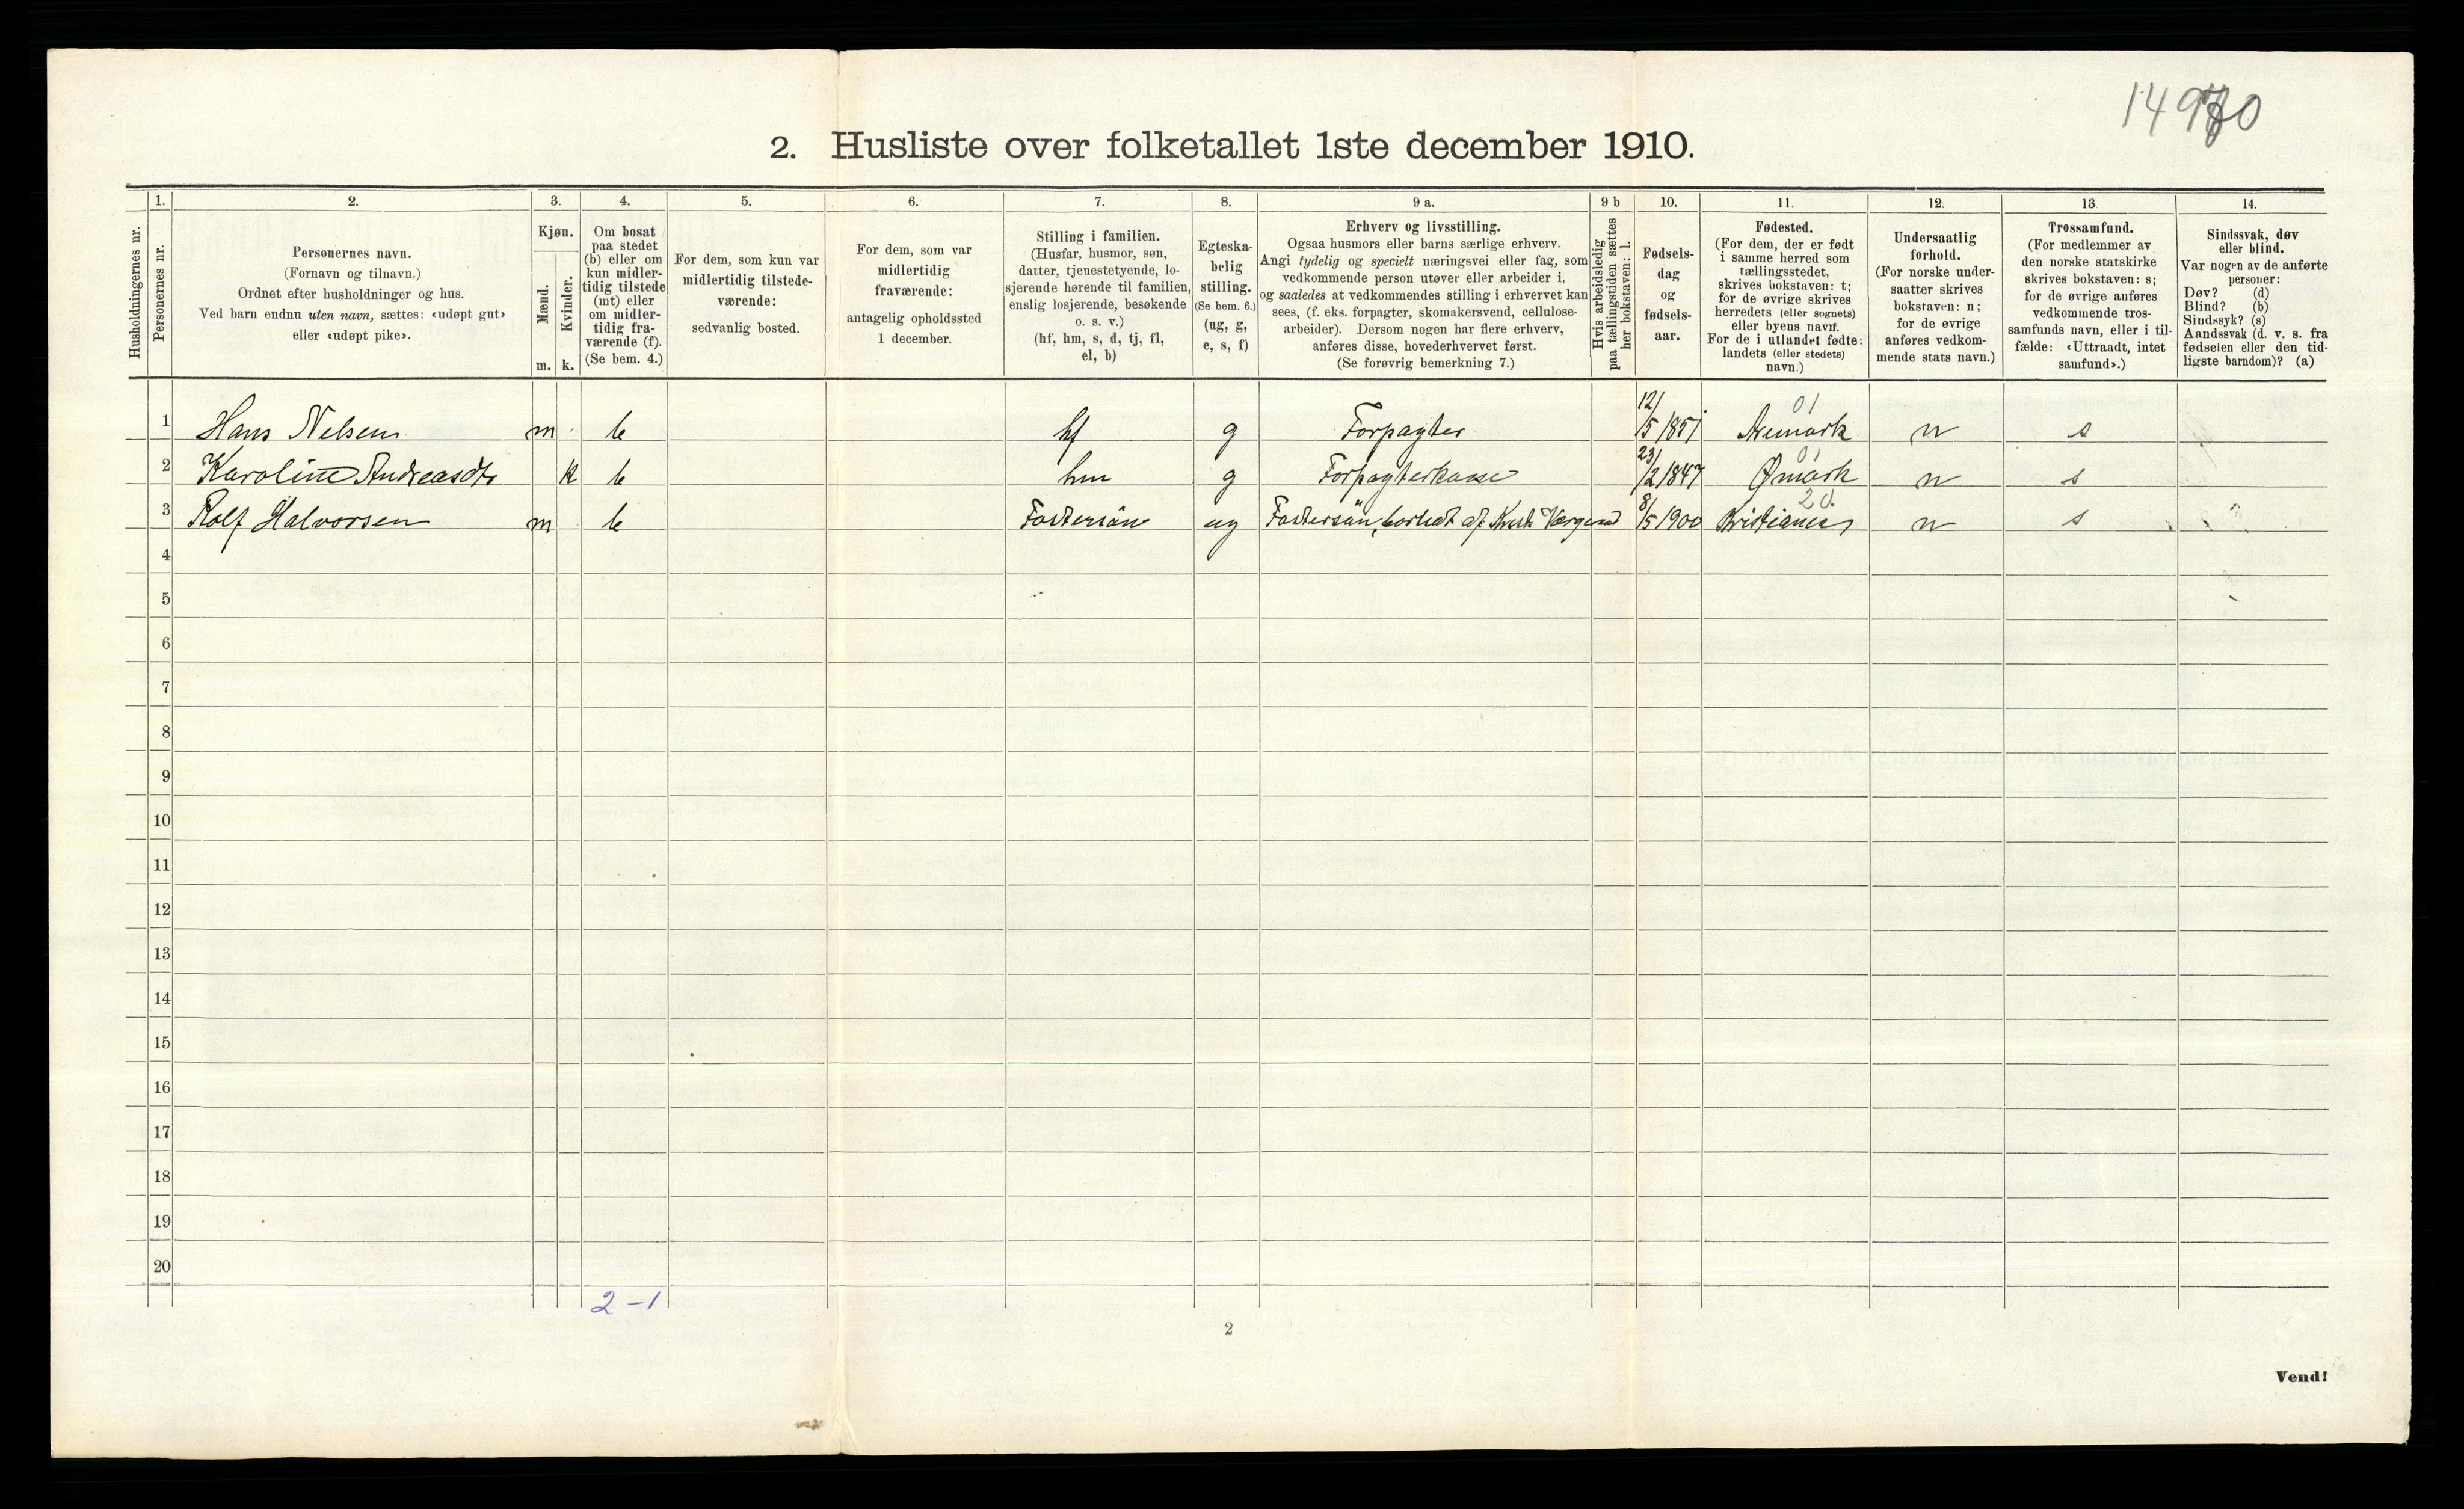 149 0
2. Husliste over folketallet 1ste december 1910.
1. 2. 3. 4. 5. 6. 7. 8. 9 a. 9 b 10. 11. 12. 13. 14.
Husholdningernes nr.
Personernes nr.
Personernes navn.
(Fornavn og tilnavn.)
Ordnet efter husholdninger og hus.
Ved barn endnu uten navn, sættes: «udøpt gut»
eller «udøpt pike».
Kjøn.
Mænd.
Kvinder.
m. k.
Om bosat
paa stedet
(b) eller om
kun midler-
tidig tilstede
(mt) eller
om midler-
tidig fra-
værende (f).
(Se bem. 4.)
For dem, som kun var
midlertidig tilstede-
værende:
sedvanlig bosted.
For dem, som var
midlertidig
fraværende:
antagelig opholdssted
1 december.
Stilling i familien.
(Husfar, husmor, søn,
datter, tjenestetyende, lo-
sjerende hørende til familien,
enslig losjerende, besøkende
o. s. v.)
(hf, hm, s, d, tj, fl,
el, b)
Egteska-
belig
stilling.
(Se bem. 6.)
(ug, g,
e, s, f)
Erhverv og livsstilling.
Ogsaa husmors eller barns særlige erhverv.
Angi tydelig og specielt næringsvei eller fag, som
vedkommende person utøver eller arbeider i,
og saaledes at vedkommendes stilling i erhvervet kan
sees, (f. eks. forpagter, skomakersvend, cellulose-
arbeider). Dersom nogen har flere erhverv,
anføres disse, hovederhvervet først.
(Se forøvrig bemerkning 7.)
Hvis arbeidsledig
paa tællingstiden sættes
her bokstaven: l.
Fødsels-
dag
og
fødsels-
aar.
Fødested.
(For dem, der er født
i samme herred som
tællingsstedet,
skrives bokstaven: t;
for de øvrige skrives
herredets (eller sognets)
eller byens navn.
For de i utlandet fødte:
landets (eller stedets)
navn.)
Undersaatlig
forhold.
(For norske under-
saatter skrives
bokstaven: n;
for de øvrige
anføres vedkom-
mende stats navn.)
Trossamfund.
(For medlemmer av
den norske statskirke
skrives bokstaven: s;
for de øvrige anføres
vedkommende tros-
samfunds navn, eller i til-
fælde: «Uttraadt, intet
samfund».)
Sindssvak, døv
eller blind.
Var nogen av de anførte
personer:
Døv? (d)
Blind? (b)
Sindssyk? (s)
Aandssvak (d. v. s. fra
fødselen eller den tid-
ligste barndom)? (a)
01
1 Hans Nelsen m b hf g Forpagter 12/5 1851 Aremark n s
01
2 Karoline Andreasdtr k b hm g Forpagterkone 23/2 1847 Ømark n s
20.
3 Rolf Halvorsen m b Fostersön ug Fostersön, bortsat af Krist. Værgeraad 8/5 1900 Kristiania n s
4
5
6
7
8
9
10
11
12
13
14
15
16
17
18
19
20
2 - 1
2
Vend!